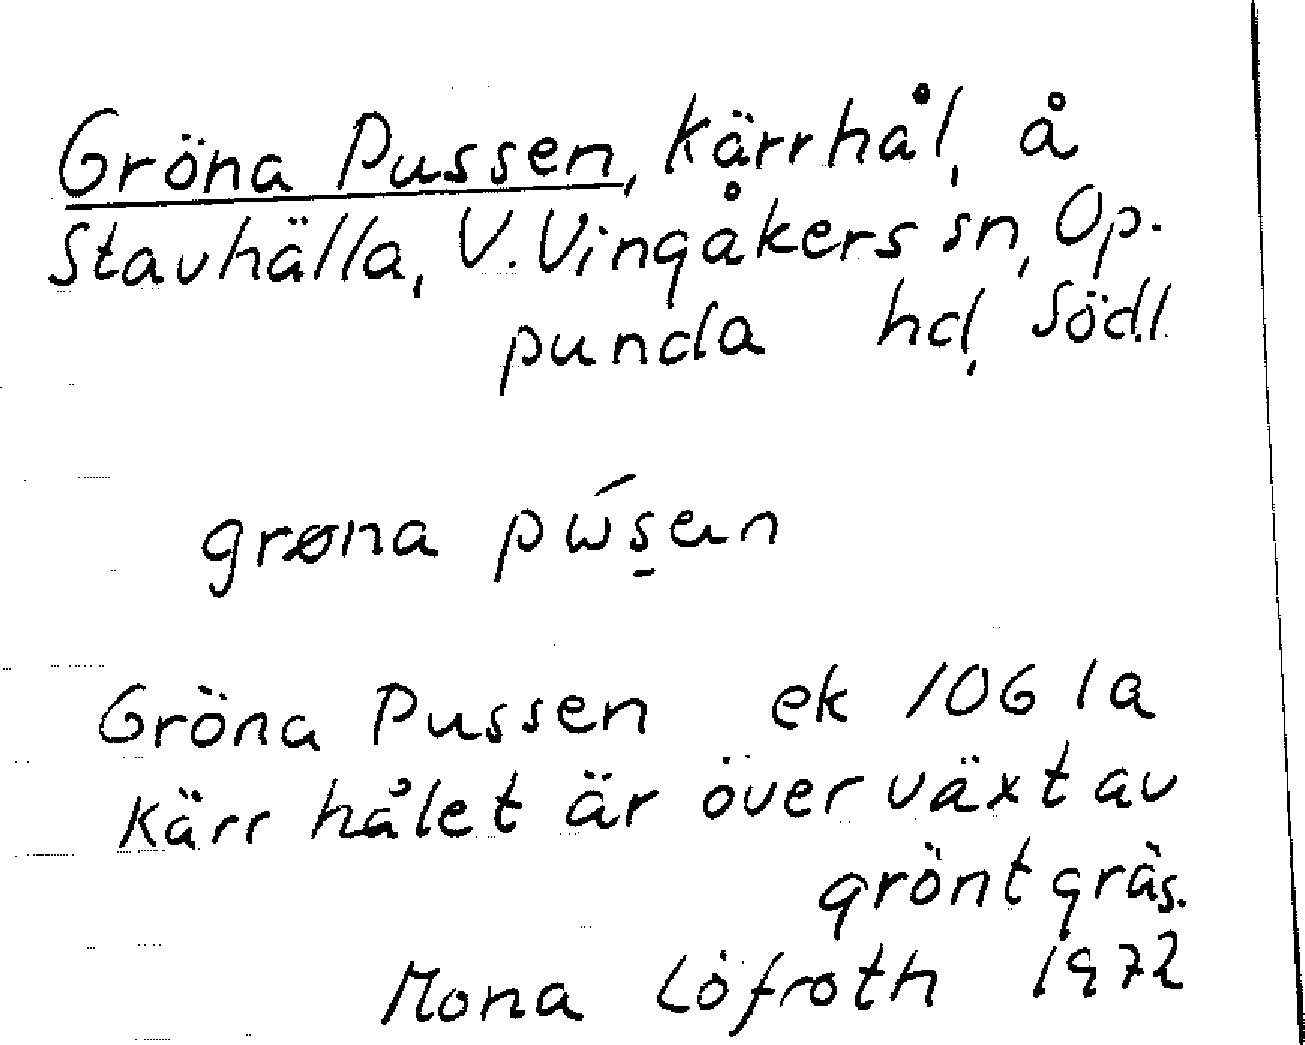 Gröna Pussen, Kärrhål, å
Stavhälla, V. Vingåkers sn, Op-
punda hd, Södl.
grøna pẃs̠en
Gröna Pussen ek 10G 1a
Kärr hålet är över växt av
grönt gräs.
Mona Löfroth 1972